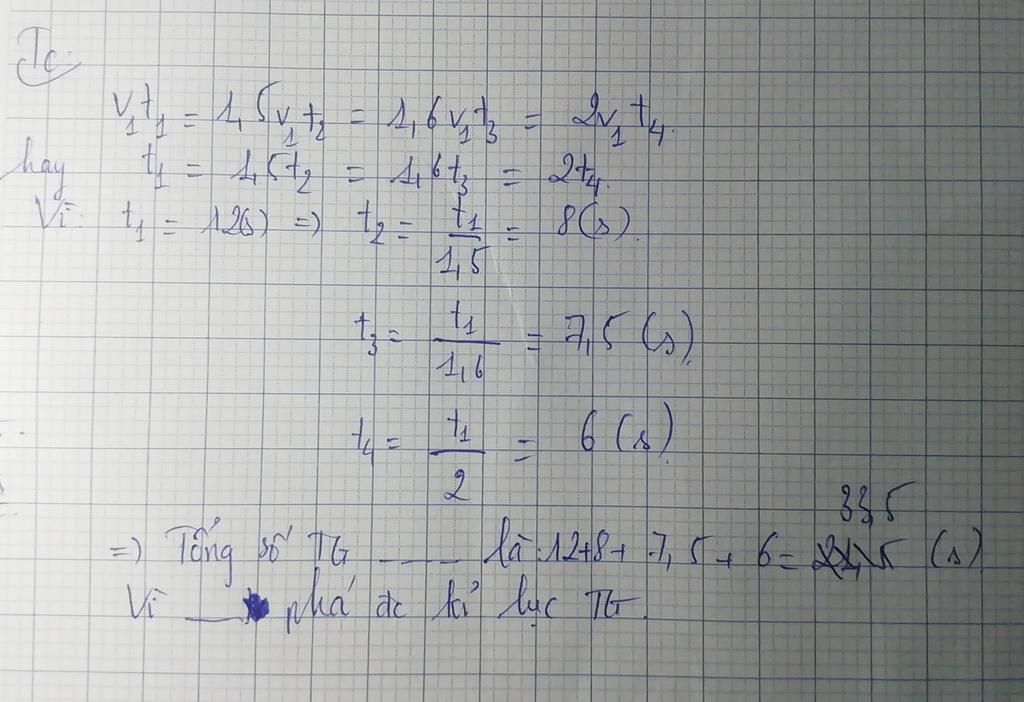 Tc:
v₁t₁ = 1,5v₁t₂ = 1,6v₁t₃ = 2v₁t₄.
hay t₁ = 1,5t₂ = 1,6t₃ = 2t₄.
Vì: t₁ = 12(s) => t₂ = t₁/1,5 = 8(s).
t₃ = t₁/1,6 = 7,5 (s).
t₄ = t₁/2 = 6 (s).
33,5
=> Tổng số TG ____ là: 12+8+7,5+6= (s)
Vì ___ phá đc kỉ lục TG.